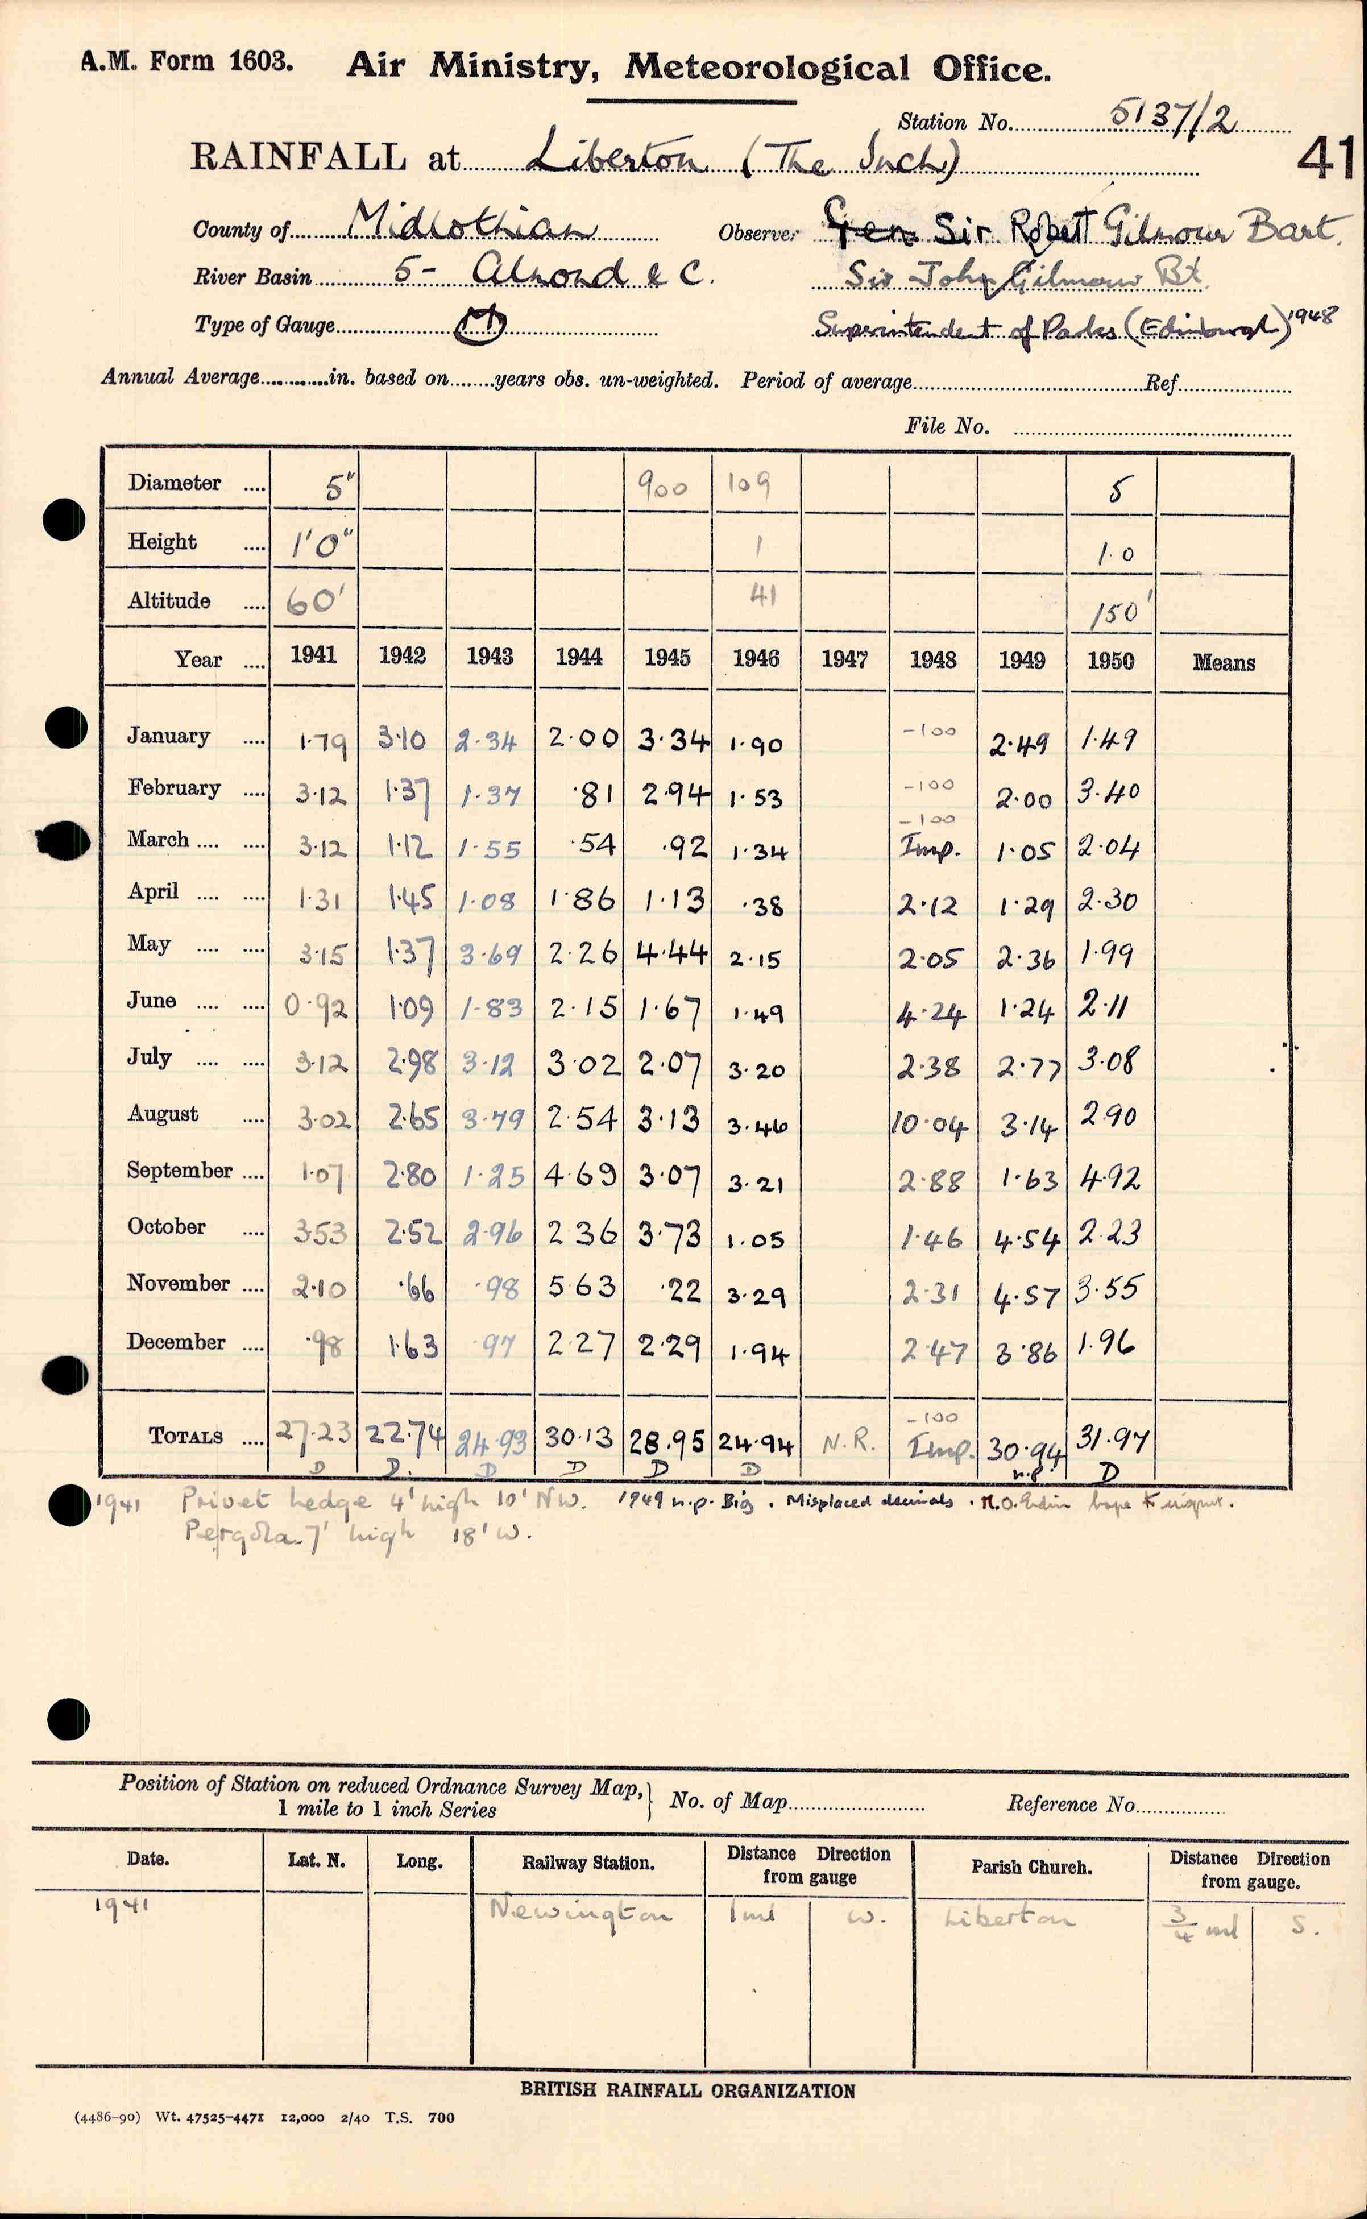 A.M. Form 1603. Air Ministry, Meteorological Office.
Station No. 5137/2
RAINFALL at Liberton (The Inch) 41
County of Midlothian Observer Gen. Sir Robert Gilmour Bart.
River Basin 5- Almond & C. Sir John Gilmour Bt.
Type of Gauge M Superintendent of Parks (Edinburgh) 1948
Annual Average in. based on years obs. un-weighted. Period of average Ref
File No.
Diameter .... 5" 900 109 5
Height .... 1'0" 1 1.0
Altitude .... 60' 41 150'
Year .... 1941 1942 1943 1944 1945 1946 1947 1948 1949 1950 Means
January .... 1.79 3.10 2.34 2.00 3.34 1.90 -100 2.49 1.49
February .... 3.12 1.37 1.37 .81 2.94 1.53 -100 2.00 3.40
-100
March .... .... 3.12 1.12 1.55 .54 .92 1.34 Imp. 1.05 2.04
April .... .... 1.31 1.45 1.08 1.86 1.13 .38 2.12 1.29 2.30
May .... .... 3.15 1.37 3.69 2.26 4.44 2.15 2.05 2.36 1.99
June .... .... 0.92 1.09 1.83 2.15 1.67 1.49 4.24 1.24 2.11
July .... .... 3.12 2.98 3.12 3.02 2.07 3.20 2.38 2.77 3.08
August .... 3.02 2.65 3.79 2.54 3.13 3.46 10.04 3.14 2.90
September .... 1.07 2.80 1.25 4.69 3.07 3.21 2.88 1.63 4.92
October .... 3.53 2.52 2.96 2.36 3.73 1.05 1.46 4.54 2.23
November .... 2.10 .66 .98 5.63 .22 3.29 2.31 4.57 3.55
December .... .98 1.63 .97 2.27 2.29 1.94 2.47 3.86 1.96
-100
TOTALS .... 27.23 22.74 24.93 30.13 28.95 24.94 N.R. Imp. 30.94 31.97
D D. D D D D n.p. D
1941 Privet hedge 4' high 10' NW. 1949 n.p. Big. Misplaced decimals. M.O. Edin hope to
Pergola 7' high 18' W.
Position of Station on reduced Ordnance Survey Map, } No. of Map Reference No.
1 mile to 1 inch Series
Date. Lat. N. Long. Railway Station. Distance Direction from gauge Parish Church. Distance Direction from gauge.
1941 Newington 1ml W. Liberton 3/4 ml S.
BRITISH RAINFALL ORGANIZATION
(4486-90) Wt. 47525-4471 12,000 2/40 T.S. 700